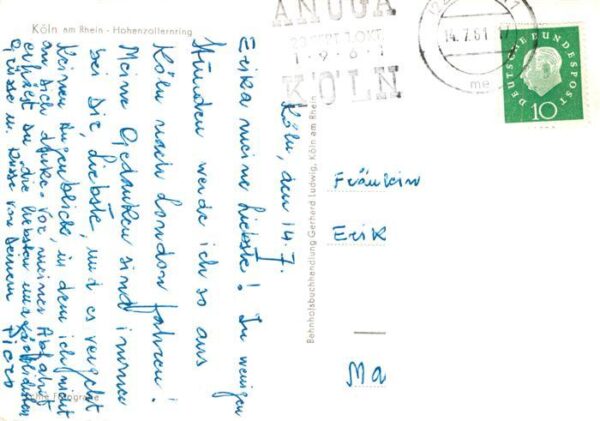 Köln am Rhein - Hohenzollernring
Köln, den 14. 7.
Erika meine Liebste! In wenigen
Stunden werde ich so aus
Köln nach London fahren!
Meine Gedanken sind immer
bei Dir, Liebste, und es vergeht
keinen Augenblick, in dem ich nicht
an Dich denke. Vor meiner Abfahrt
erhälst Du die liebsten und
Grüsse u. Küsse von Deinem
Piero
Bahnhofsbuchhandlung Gerhard Ludwig, Köln am Rhein
ANUGA
1961
KÖLN
14.7.61
DEUTSCHE BUNDESPOST
10
Fräulein
Erik
Ma